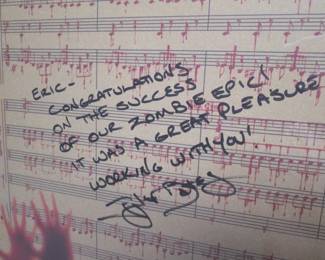 ERIC-
CONGRATULATIONS
ON THE SUCCESS
OF OUR ZOMBIE EPIC!
IT WAS A GREAT PLEASURE
WORKING WITH YOU!